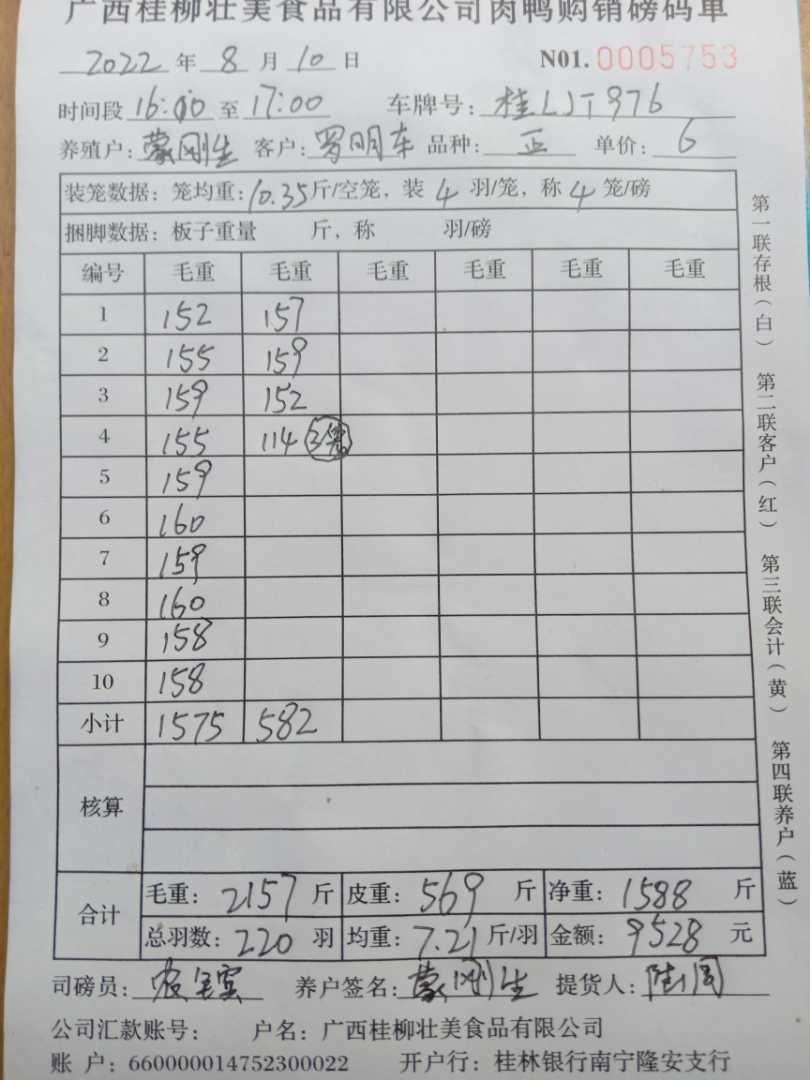 广西桂柳壮美食品有限公司肉鸭购销磅码单
2022 年 8 月 10 日 N01. 0005753
时间段 16:00 至 17:00 车牌号: 桂LJT976
养殖户: 蒙刚生 客户: 罗明车 品种: 正 单价: 6
装笼数据: 笼均重: 10.35 斤/空笼, 装 4 羽/笼, 称 4 笼/磅
捆脚数据: 板子重量 斤, 称 羽/磅
编号 毛重 毛重 毛重 毛重 毛重 毛重
1 152 157
2 155 159
3 159 152
4 155 114 3笼
5 159
6 160
7 159
8 160
9 158
10 158
小计 1575 582
核算
合计
毛重: 2157 斤 皮重: 569 斤 净重: 1588 斤
总羽数: 220 羽 均重: 7.21 斤/羽 金额: 9528 元
司磅员: 养户签名: 蒙刚生 提货人:
公司汇款账号: 户名: 广西桂柳壮美食品有限公司
账 户: 660000014752300022 开户行: 桂林银行南宁隆安支行
第一联存根(白)
第二联客户(红)
第三联会计(黄)
第四联养户(蓝)